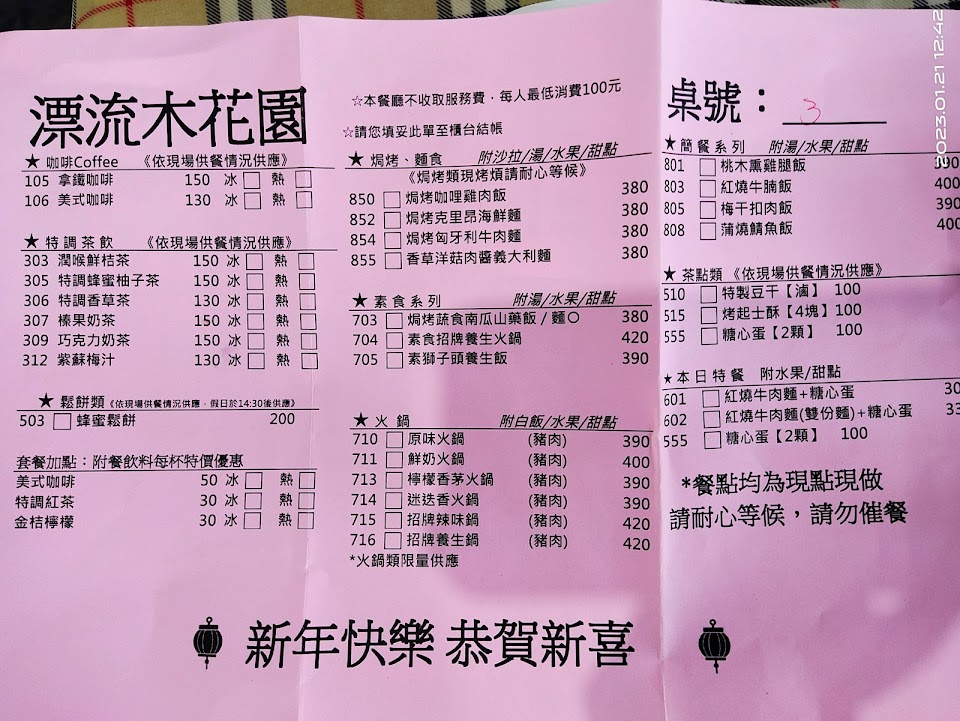 漂流木花園
★ 咖啡Coffee 《依現場供餐情況供應》
105 拿鐵咖啡 150 冰□ 熱□
106 美式咖啡 130 冰□ 熱□
★ 特調茶飲 《依現場供餐情況供應》
303 潤喉鮮桔茶 150 冰□ 熱□
305 特調蜂蜜柚子茶 150 冰□ 熱□
306 特調香草茶 130 冰□ 熱□
307 榛果奶茶 150 冰□ 熱□
309 巧克力奶茶 150 冰□ 熱□
312 紫蘇梅汁 130 冰□ 熱□
★ 鬆餅類《依現場供餐情況供應，假日於14:30後供應》
503 □ 蜂蜜鬆餅 200
套餐加點：附餐飲料每杯特價優惠
美式咖啡 50 冰□ 熱□
特調紅茶 30 冰□ 熱□
金桔檸檬 30 冰□ 熱□
☆本餐廳不收取服務費，每人最低消費100元
☆請您填妥此單至櫃台結帳
★ 焗烤、麵食 附沙拉/湯/水果/甜點
《焗烤類現烤煩請耐心等候》
850 □ 焗烤咖哩雞肉飯 380
852 □ 焗烤克里昂海鮮麵 380
854 □ 焗烤匈牙利牛肉麵 380
855 □ 香草洋菇肉醬義大利麵 380
★ 素食系列 附湯/水果/甜點
703 □ 焗烤蔬食南瓜山藥飯 / 麵○ 380
704 □ 素食招牌養生火鍋 420
705 □ 素獅子頭養生飯 390
★ 火鍋 附白飯/水果/甜點
710 □ 原味火鍋 (豬肉) 390
711 □ 鮮奶火鍋 (豬肉) 400
713 □ 檸檬香茅火鍋 (豬肉) 390
714 □ 迷迭香火鍋 (豬肉) 390
715 □ 招牌辣味鍋 (豬肉) 420
716 □ 招牌養生鍋 (豬肉) 420
*火鍋類限量供應
桌號：3
★簡餐系列 附湯/水果/甜點
801 □ 桃木熏雞腿飯 90
803 □ 紅燒牛腩飯 400
805 □ 梅干扣肉飯 390
808 □ 蒲燒鯖魚飯 400
★茶點類《依現場供餐情況供應》
510 □ 特製豆干【滷】 100
515 □ 烤起士酥【4塊】100
555 □ 糖心蛋【2顆】 100
★本日特餐 附水果/甜點
601 □ 紅燒牛肉麵+糖心蛋 30
602 □ 紅燒牛肉麵(雙份麵)+糖心蛋 33
555 □ 糖心蛋【2顆】 100
*餐點均為現點現做
請耐心等候，請勿催餐
新年快樂 恭賀新喜
2023.01.21 12:42